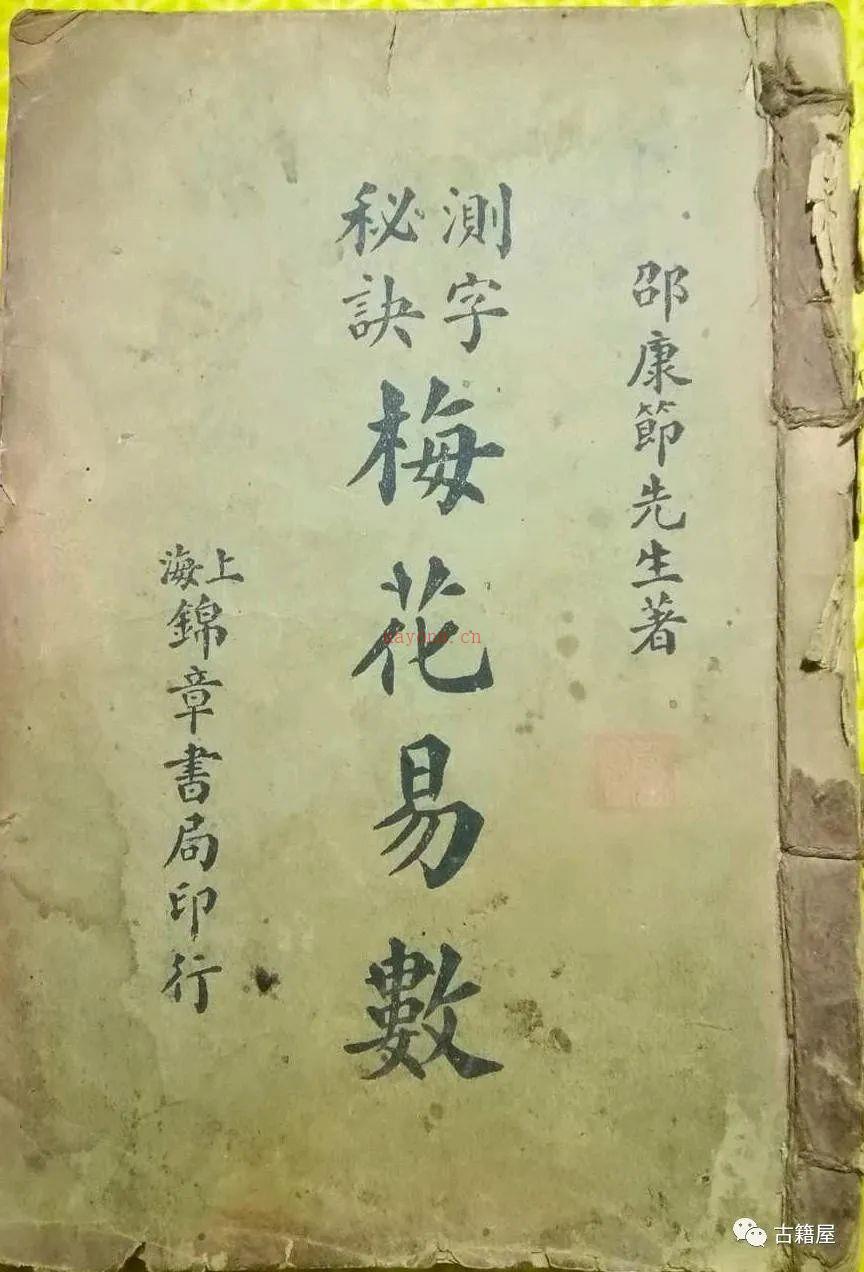 邵康節先生著
測字
秘訣
梅花易數
上海
錦章書局印行
nayona.cn
古籍屋